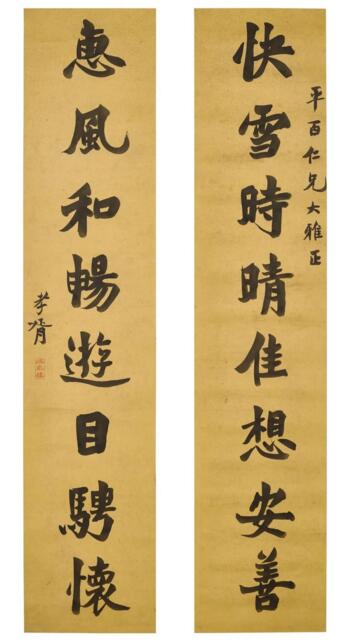 平百仁兄大雅正
快雪時晴佳想安善
惠風和暢遊目騁懷
孝胥